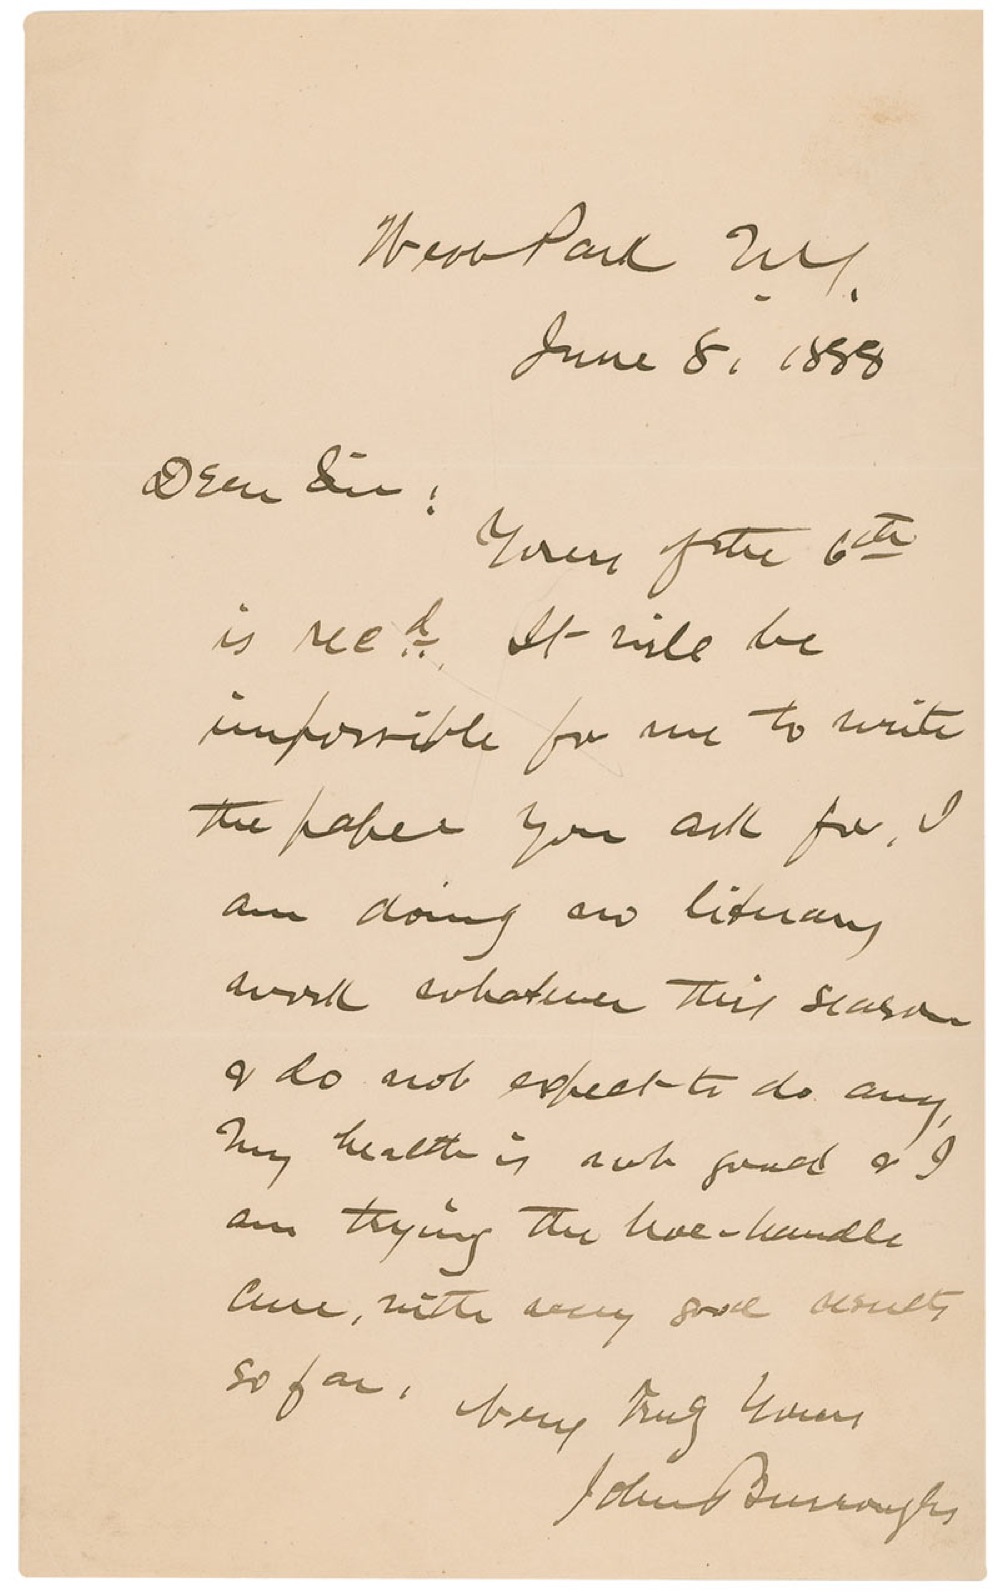 West Park N.Y.
June 8, 1888
Dear Sir:
Yours of the 6th
is recd. It will be
impossible for me to write
the paper you ask for, I
am doing no literary
work whatever this season
& do not expect to do any,
My health is not good & I
am trying the hoe-handle
cure, with very good results
so far.
Very Truly Yours
John Burroughs